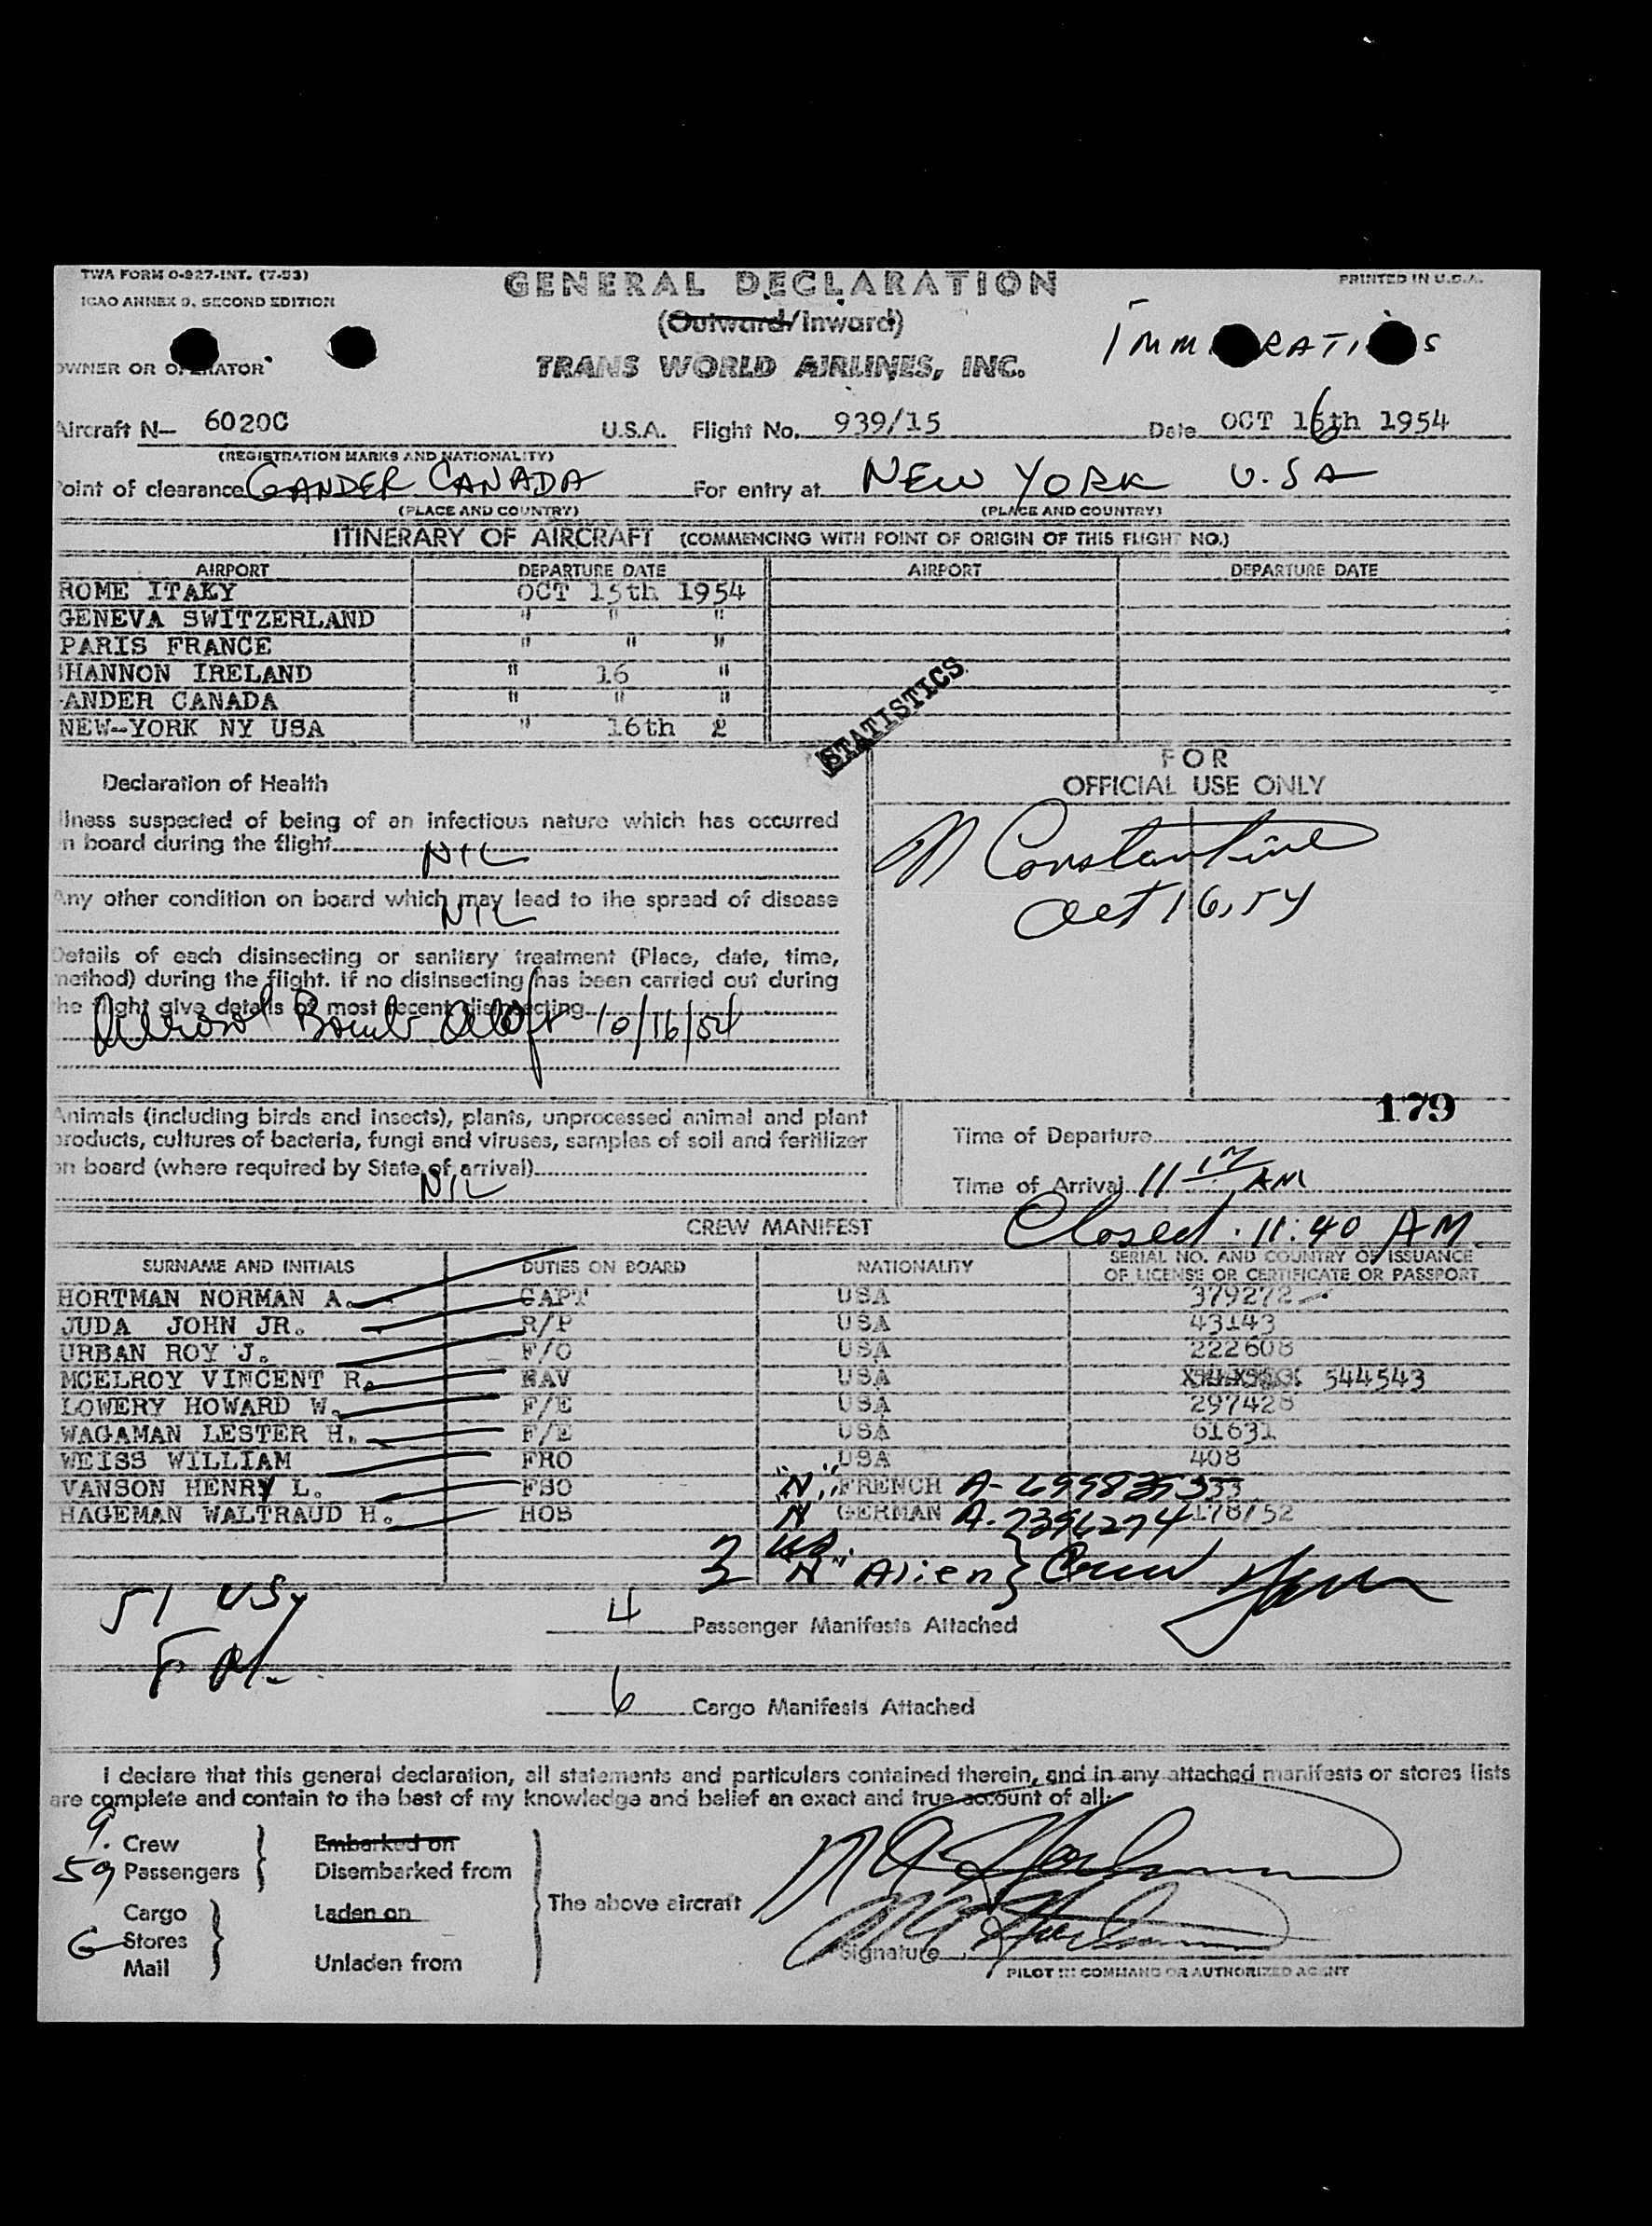 TWA FORM O-927-INT. (7-53)
ICAO ANNEX 9, SECOND EDITION
GENERAL DECLARATION
PRINTED IN U.S.A.
(Outward/Inward)
OWNER OR OPERATOR
TRANS WORLD AIRLINES, INC.
Aircraft N— 6020C U.S.A. Flight No. 939/15 Date OCT 16th 1954
(REGISTRATION MARKS AND NATIONALITY)
oint of clearance GANDER CANADA For entry at NEW YORK U.SA
(PLACE AND COUNTRY) (PLACE AND COUNTRY)
ITINERARY OF AIRCRAFT (COMMENCING WITH POINT OF ORIGIN OF THIS FLIGHT NO.)
AIRPORT DEPARTURE DATE AIRPORT DEPARTURE DATE
ROME ITAKY OCT 15th 1954
GENEVA SWITZERLAND " " "
PARIS FRANCE " " "
HANNON IRELAND " 16 "
ANDER CANADA " " "
NEW-YORK NY USA " 16th
STATISTICS
Declaration of Health
FOR
OFFICIAL USE ONLY
llness suspected of being of an infectious nature which has occurred
n board during the flight NIL
Any other condition on board which may lead to the spread of disease
NIL
M Constantine
Oct 16, 54
Details of each disinsecting or sanitary treatment (Place, date, time,
method) during the flight. If no disinsecting has been carried out during
the flight give details of most recent disinsecting
Aerosol Bomb Aloft 10/16/54
Animals (including birds and insects), plants, unprocessed animal and plant
products, cultures of bacteria, fungi and viruses, samples of soil and fertilizer
on board (where required by State of arrival)
NIL
179
Time of Departure
Time of Arrival 11 17 AM
Closed. 11:40 AM
CREW MANIFEST
SURNAME AND INITIALS DUTIES ON BOARD NATIONALITY SERIAL NO. AND COUNTRY OF ISSUANCE
OF LICENSE OR CERTIFICATE OR PASSPORT
HORTMAN NORMAN A. CAPT USA 379272
JUDA JOHN JR. R/P USA 43143
URBAN ROY J. F/O USA 222608
MCELROY VINCENT R. NAV USA 544543
LOWERY HOWARD W. F/E USA 297428
WAGAMAN LESTER H. F/E USA 61631
WEISS WILLIAM FRO USA 408
VANSON HENRY L. FSO "N" FRENCH
HAGEMAN WALTRAUD H. HOS N GERMAN A-7396274 178/52
"N" Alien} Crew
51 USy
4 Passenger Manifests Attached
6 Cargo Manifests Attached
I declare that this general declaration, all statements and particulars contained therein, and in any attached manifests or stores lists
are complete and contain to the best of my knowledge and belief an exact and true account of all:
9. Crew
59 Passengers
Embarked on
Disembarked from
Cargo
Stores
Mail
Laden on
Unladen from
The above aircraft
Signature
PILOT IN COMMAND OR AUTHORIZED AGENT